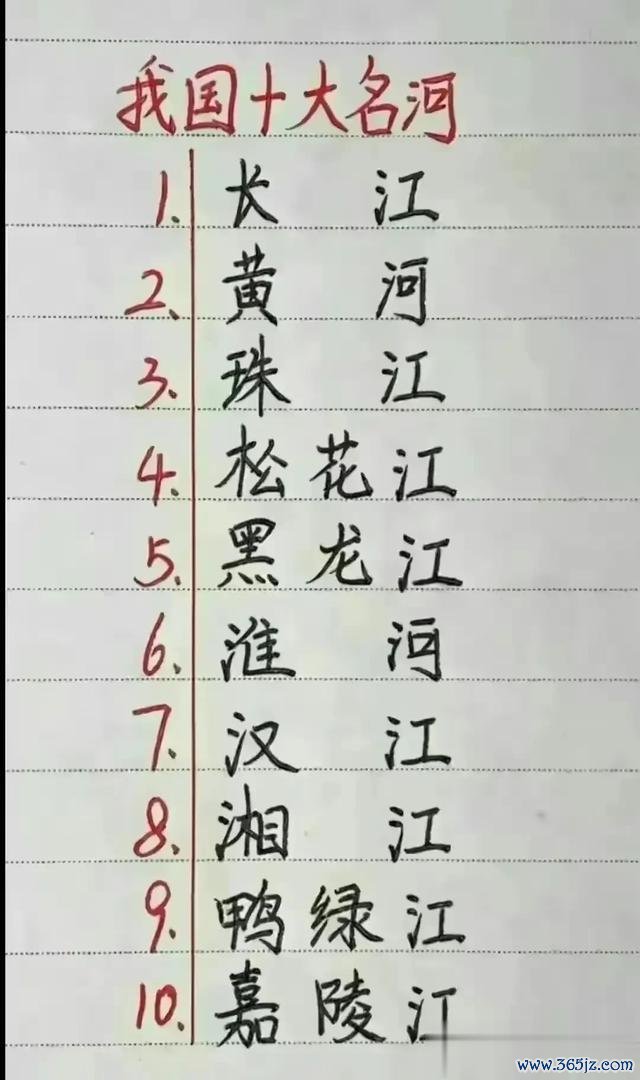 我国十大名河
1. 长江
2. 黄河
3. 珠江
4. 松花江
5. 黑龙江
6. 淮河
7. 汉江
8. 湘江
9. 鸭绿江
10. 嘉陵江
www.365jz.com